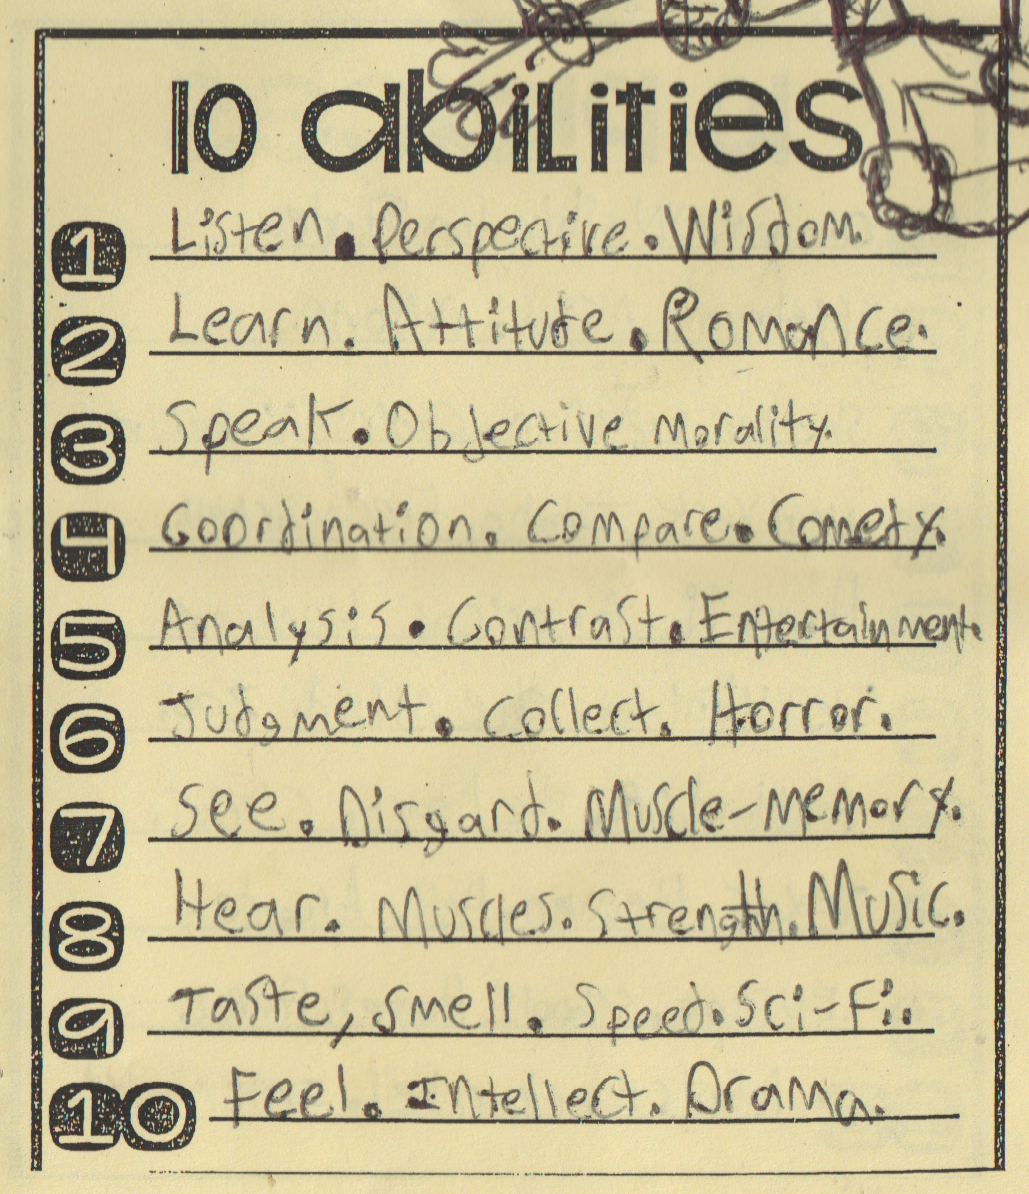 10 abilities
1 Listen. Perspective. Wisdom.
2 Learn. Attitude. Romance.
3 Speak. Objective morality.
4 Coordination. Compare. Comedy.
5 Analysis. Contrast. Entertainment.
6 Judgment. Collect. Horror.
7 See. Disgard. Muscle-memory.
8 Hear. Muscles. Strength. Music.
9 Taste, smell. Speed. Sci-Fi.
10 Feel. Intellect. Drama.